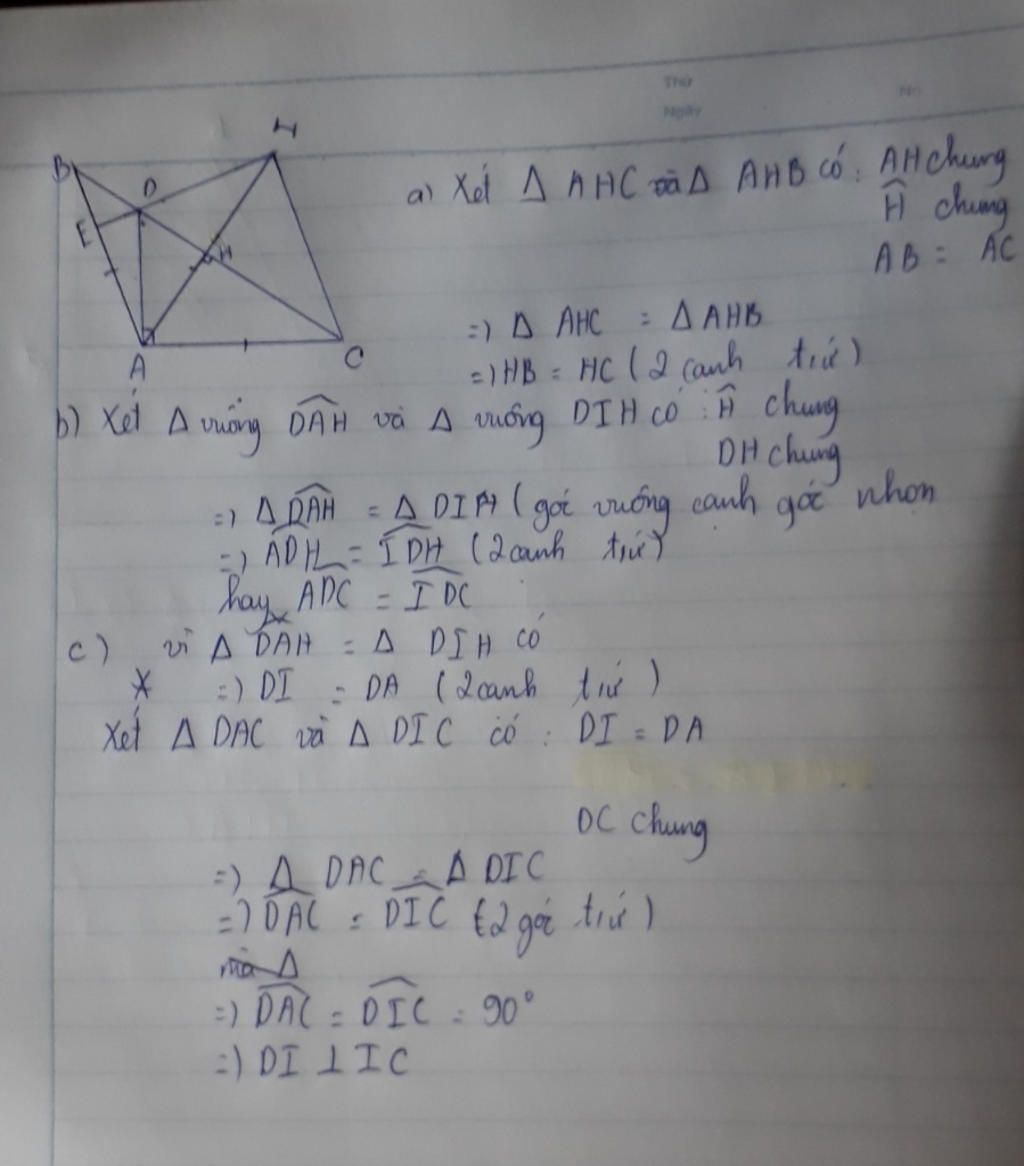 Thứ
Ngày
No
B
D
E
H
A
C
a) Xét Δ AHC và Δ AHB có : AH chung
Ĥ chung
AB = AC
=) Δ AHC = Δ AHB
=) HB = HC ( 2 canh tứ )
b) Xét Δ vuông DAH và Δ vuông DIH có : Ĥ chung
DH chung
=) Δ DAH = Δ DIH ( góc vuông canh góc nhọn
=) ADH = IDH ( 2 canh tứ )
hay ADC = IDC
c) vì Δ DAH = Δ DIH có
=) DI = DA ( 2 canh tứ )
Xét Δ DAC và Δ DIC có : DI = DA
DC chung
=) Δ DAC = Δ DIC
=) DAC = DIC ( 2 góc tứ )
mà Δ
=) DAC = DIC = 90°
=) DI ⊥ IC